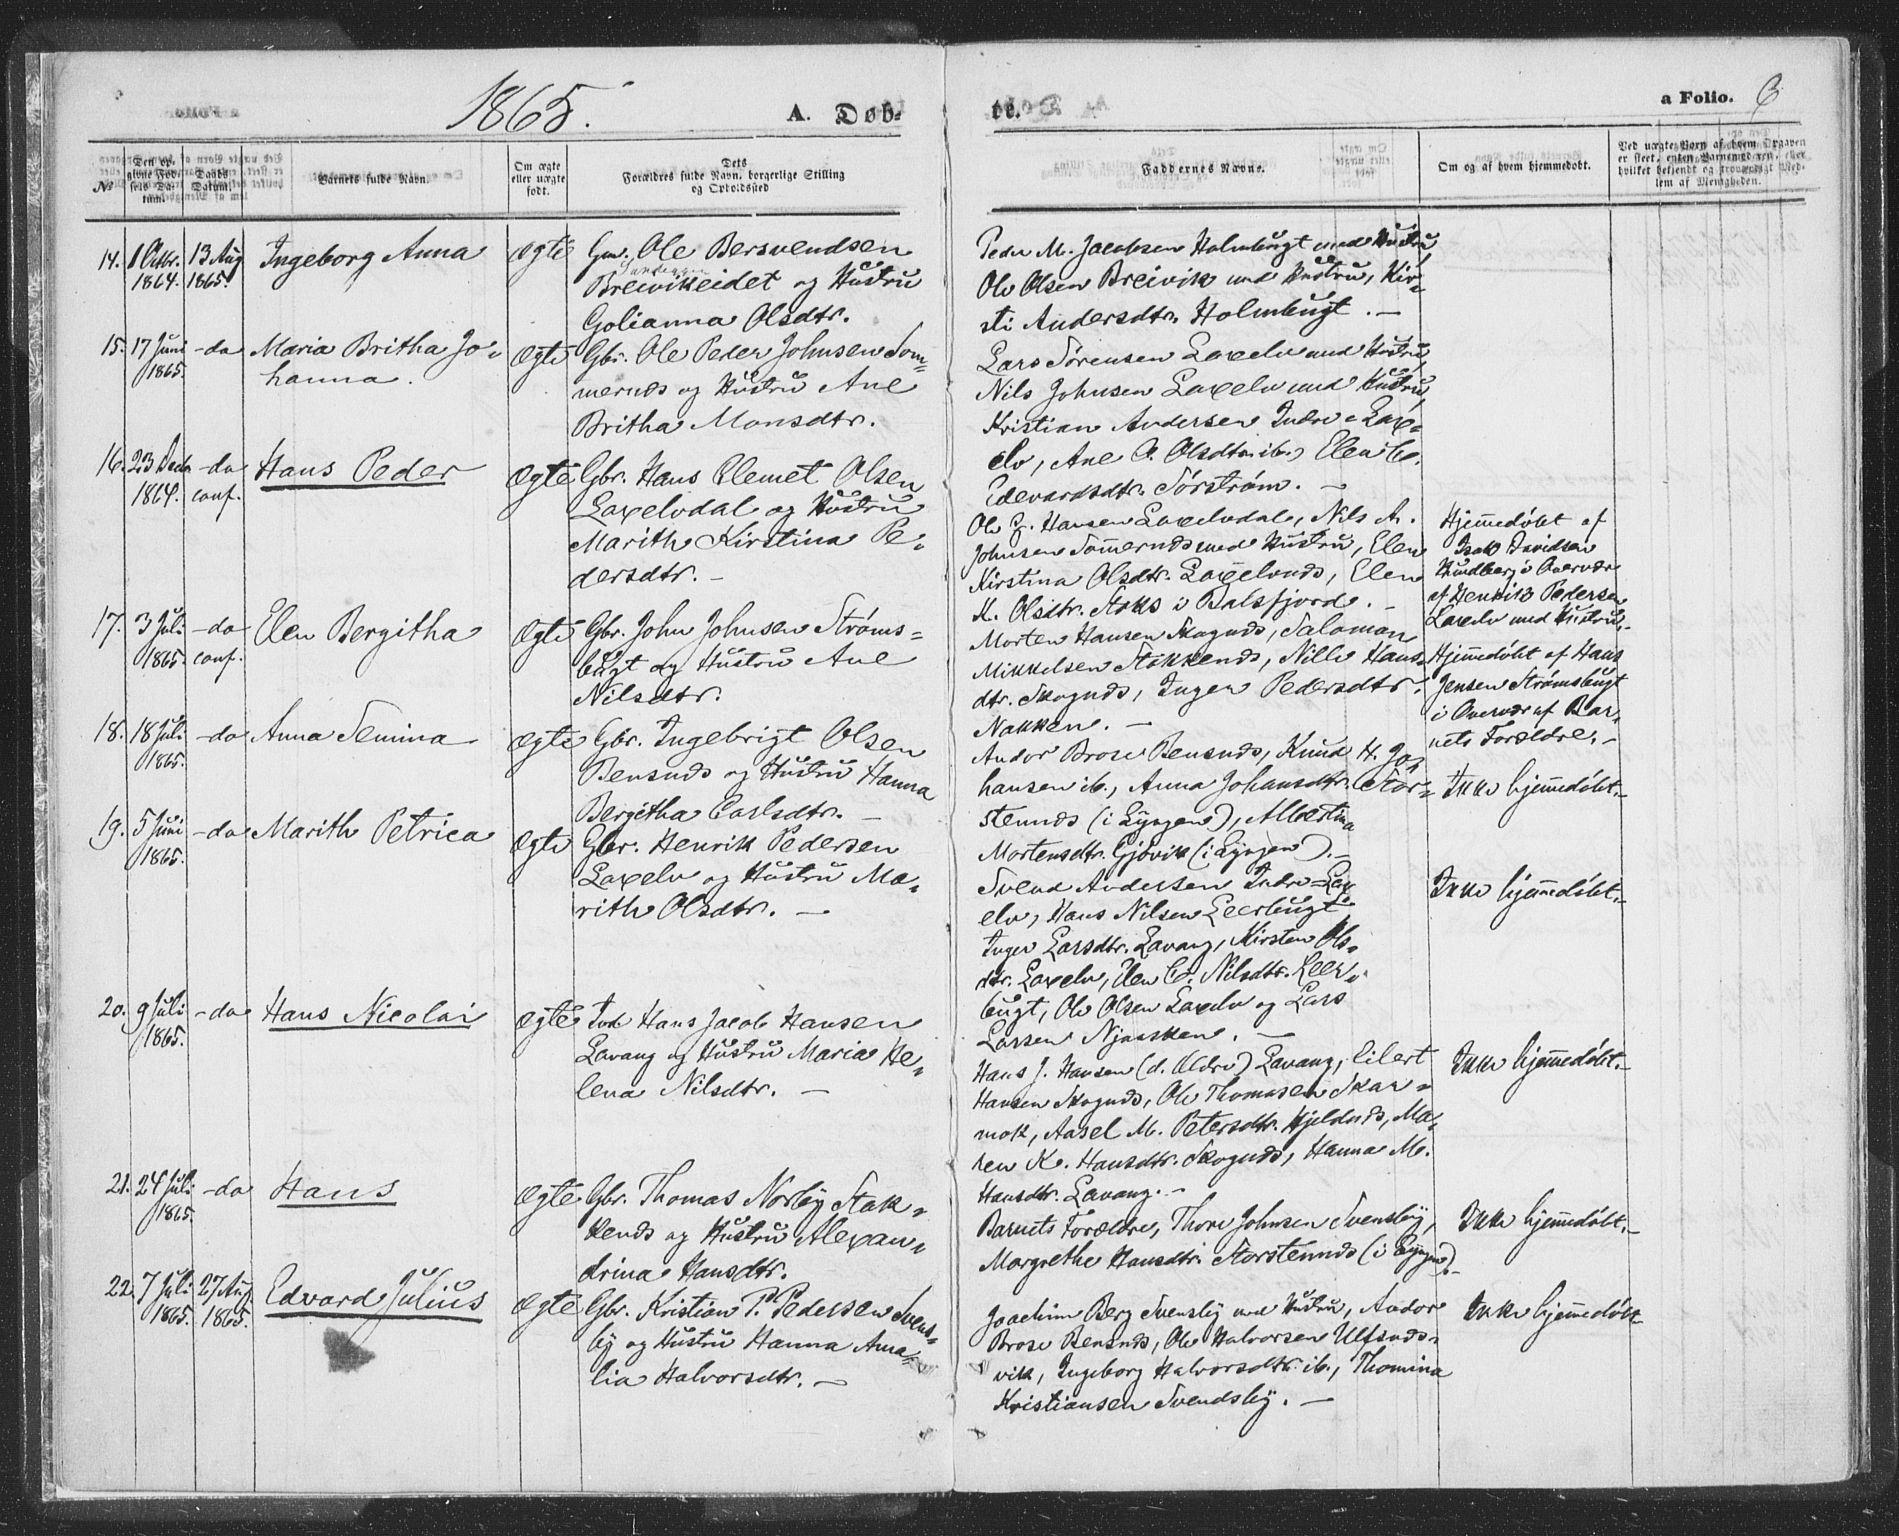 1865.
A. Døb-
te.
a Folio. 6
No
Den op-
givne Fød-
sels Da-
tum.
Daabs
Datum.
Barnets fulde Navn.
Om ægte
eller uægte
født.
Dets
Forældres fulde Navn, borgerlige Stilling
og Opholdssted
Faddernes Navne.
Om og af hvem hjemmedøbt.
Ved uægte Børn af hvem Opgaven
er skeet, enten Barnemoderen, eller
hvilket bekjendt og troværdigt Med-
lem af Menigheden.
14. 1 Octbr. 1864. 13 Aug 1865. Ingeborg Anna ægte
Gm. Ole Bersvendsen
Sandeggen
Breivikeidet og Hustru
Golianna Olsdtr.
Peder M. Jacobsen Holmbugt med Hustru
Ole Olsen Breivik med Hustru, Kir-
sti Andersdtr. Holmbugt. —
15. 17 Juni 1865. -do Maria Britha Jo-
hanna. Ægte
Gbr. Ole Peder Johnsen Som-
mernæs og Hustru Ane
Britha Monsdtr.
Lars Sørensen Laxelv med Hustru,
Nils Johnsen Laxelv med Hustru,
Kristian Andersen Indre-Lax-
elv, Ane O. Olsdtr. ib., Elen C.
Edevardsdtr. Sørstrøm. —
16. 23 Decb 1864. -do conf. Hans Peder Ægte
Gbr. Hans Clemet Olsen
Laxelvdal og Hustru
Marith Kirstina Pe-
dersdtr. —
Ole P. Hansen Laxelvdal, Nils A.
Johnsen Sommernds med Hustru, Elen
Kirstina Olsdtr. Laxelvnds, Elen
M. Olsdtr. Stoks i Balsfjord. —
Hjemmedøbt af
Isak Davidsen
Hundberg i Overvær
af Henrik Pedersen
Laxelv med Hustru. —
17. 3 Juli 1865. -do conf. Elen Bergitha Ægte
Gbr. John Johnsen Strøms-
bugt og Hustru Ane
Nilsdtr.
Morten Hansen Skognds, Salomon
Mikkelsen Stokkends, Nille Hans-
dtr. Skognds, Inger Pedersdtr.
Nakken. —
Hjemmedøbt af Hans
Jensen Strømsbugt
i Overvær af Bar-
nets Forældre. —
18. 18 Juli 1865. -do Anna Semina Ægte
Gbr. Ingebrigt Olsen
Bensnds og Hustru Hanna
Bergitha Carlsdtr. —
Andor Brose Bensnds, Knud H. Jo-
hansen ib., Anna Johansdtr. Stor-
stennds (i Lyngen), Albertina
Mortensdtr. Gjøvik (i Lyngen). —
Ikke hjemmedøbt. —
19. 5 Juni 1865. -do Marith Petrica Ægte
Gbr. Henrik Pedersen
Laxelv og Hustru Ma-
rith Olsdtr. —
Svend Andersen Indre-Lax-
elv, Hans Nilsen Leerbugt
Inger Larsdtr. Lavang, Kirsten Ols-
dtr. Laxelv, Elen C. Nilsdtr. Leer-
bugt, Ole Olsen Laxelv og Lars
Larsen Njaasken. —
Ikke hjemmedøbt. —
20. 9 Juli 1865. -do Hans Nicolai Ægte
Ind. Hans Jacob Hansen
Lavang og Hustru Maria He-
lena Nilsdtr. —
Hans J. Hansen (d. Ældre) Lavang, Eilert
Hansen Skognds, Ole Thomasen Skar-
mok, Aasel M. Petersdtr. Hjeldnds, Ma-
ren K. Hansdtr. Skognds, Hanna M.
Hansdtr. Lavang. —
Ikke hjemmedøbt. —
21. 24 Juli 1865. -do Hans Ægte
Gbr. Thomas Norbÿ Stok-
kends og Hustru Alexan-
drina Hansdtr.
Barnets Forældre, Thore Johnsen Svensbÿ,
Margrethe Hansdtr. Storstennds (i Lyngen). —
Ikke hjemmedøbt. —
22. 7 Juli 1865. 27 Aug. 1865. Edvard Julius Ægte
Gbr. Kristian P. Pedersen Svens-
bÿ og Hustru Hanna Ama-
lia Halvorsdtr. —
Joachim Berg Svensbÿ med Hustru, Andor
Brose Bensnds, Ole Halvorsen Ulfsnds-
vik, Ingeborg Halvorsdtr. ib., Thomina
Kristiansen Svendsbÿ. —
Ikke hjemmedøbt